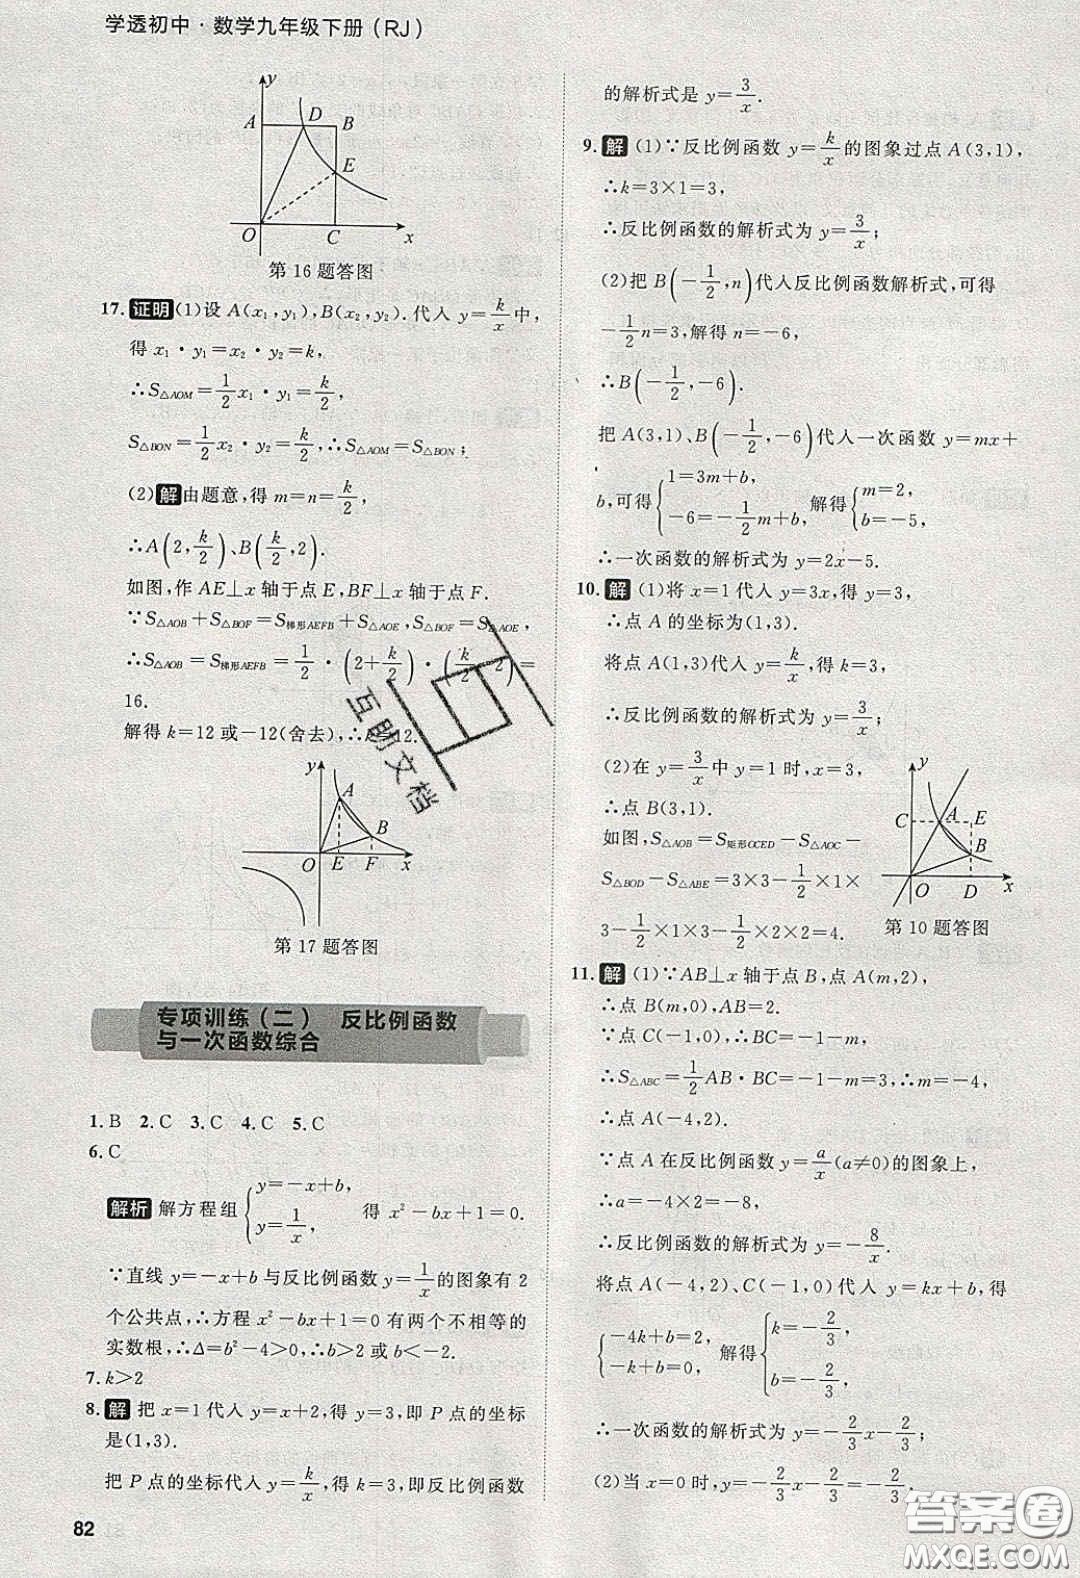 学透初中·数学九年级下册(RJ)
y
A D B
E
O C x
第16题答图
17.证明(1)设 A(x₁,y₁),B(x₂,y₂).代入 y=k/x 中,
得 x₁·y₁=x₂·y₂=k,
∴S△AOM=1/2x₁·y₁=k/2,
S△BON=1/2x₂·y₂=k/2,∴S△AOM=S△BON;
(2)解由题意,得 m=n=k/2,
∴A(2,k/2)、B(k/2,2).
如图,作 AE⊥x 轴于点 E,BF⊥x 轴于点 F.
∵S△AOB+S△BOF=S梯形AEFB+S△AOE,S△BOF=S△AOE,
∴S△AOB=S梯形AEFB=1/2·(2+k/2)·(k/2-2)=
16.
解得 k=12 或-12(舍去),∴k=12.
y
A
B
O E F x
第17题答图
专项训练(二) 反比例函数
与一次函数综合
1.B 2.C 3.C 4.C 5.C
6.C
解析 解方程组{y=-x+b, y=1/x, 得 x²-bx+1=0.
∵直线 y=-x+b 与反比例函数 y=1/x 的图象有 2
个公共点,∴方程 x²-bx+1=0 有两个不相等的
实数根,∴Δ=b²-4>0,∴b>2 或 b<-2.
7.k>2
8.解 把 x=1 代入 y=x+2,得 y=3,即 P 点的坐标
是(1,3).
把 P 点的坐标代入 y=k/x,得 k=3,即反比例函数
82
的解析式是 y=3/x.
9.解 (1)∵反比例函数 y=k/x 的图象过点 A(3,1),
∴k=3×1=3,
∴反比例函数的解析式为 y=3/x;
(2)把 B(-1/2,n)代入反比例函数解析式,可得
-1/2n=3,解得 n=-6,
∴B(-1/2,-6).
把 A(3,1)、B(-1/2,-6)代入一次函数 y=mx+
b,可得{1=3m+b, -6=-1/2m+b, 解得{m=2, b=-5,
∴一次函数的解析式为 y=2x-5.
10.解 (1)将 x=1 代入 y=3x,得 y=3,
∴点 A 的坐标为(1,3).
将点 A(1,3)代入 y=k/x,得 k=3,
∴反比例函数的解析式为 y=3/x;
(2)在 y=3/x 中 y=1 时,x=3,
∴点 B(3,1).
如图,S△AOB=S矩形OCED-S△AOC-
S△BOD-S△ABE=3×3-1/2×1×
3-1/2×1×3-1/2×2×2=4.
y
C A E
B
O D x
第10题答图
11.解 (1)∵AB⊥x 轴于点 B,点 A(m,2),
∴点 B(m,0),AB=2.
∵点 C(-1,0),∴BC=-1-m,
∴S△ABC=1/2AB·BC=-1-m=3,∴m=-4,
∴点 A(-4,2).
∵点 A 在反比例函数 y=a/x(a≠0)的图象上,
∴a=-4×2=-8,
∴反比例函数的解析式为 y=-8/x.
将点 A(-4,2)、C(-1,0)代入 y=kx+b,得
{-4k+b=2, -k+b=0, 解得{k=-2/3, b=-2/3,
∴一次函数的解析式为 y=-2/3x-2/3.
(2)当 x=0 时,y=-2/3x-2/3=-2/3,
互助文档
答案圈
MXQE.COM